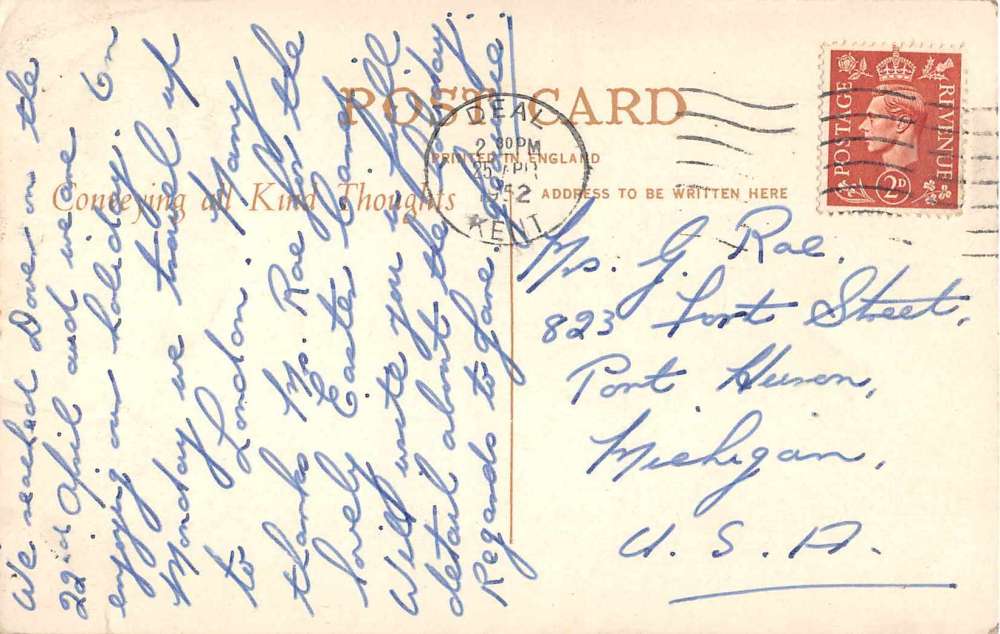 We reached Dover on the
22nd April and we are
enjoying our holiday. On
Monday we travel up
to London. Many
thanks Mrs. Rae for the
lovely Easter Card.
Will write you a full
detail about the holiday.
Regards to Jane. Jamie.
POST CARD
PRINTED IN ENGLAND
Conveying all Kind Thoughts
ADDRESS TO BE WRITTEN HERE
DEAL
2 30PM
25 APR
1952
KENT
POSTAGE
REVENUE
2D
Mrs. G. Rae.
823 Fort Street,
Port Huron,
Michigan,
U. S. A.